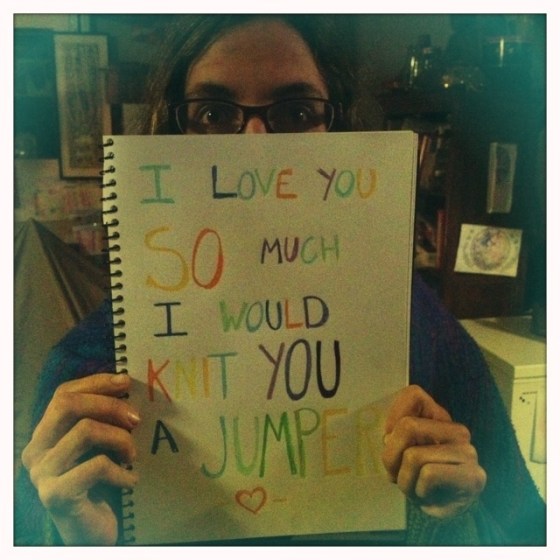 I LOVE YOU
SO MUCH
I WOULD
KNIT YOU
A JUMPER